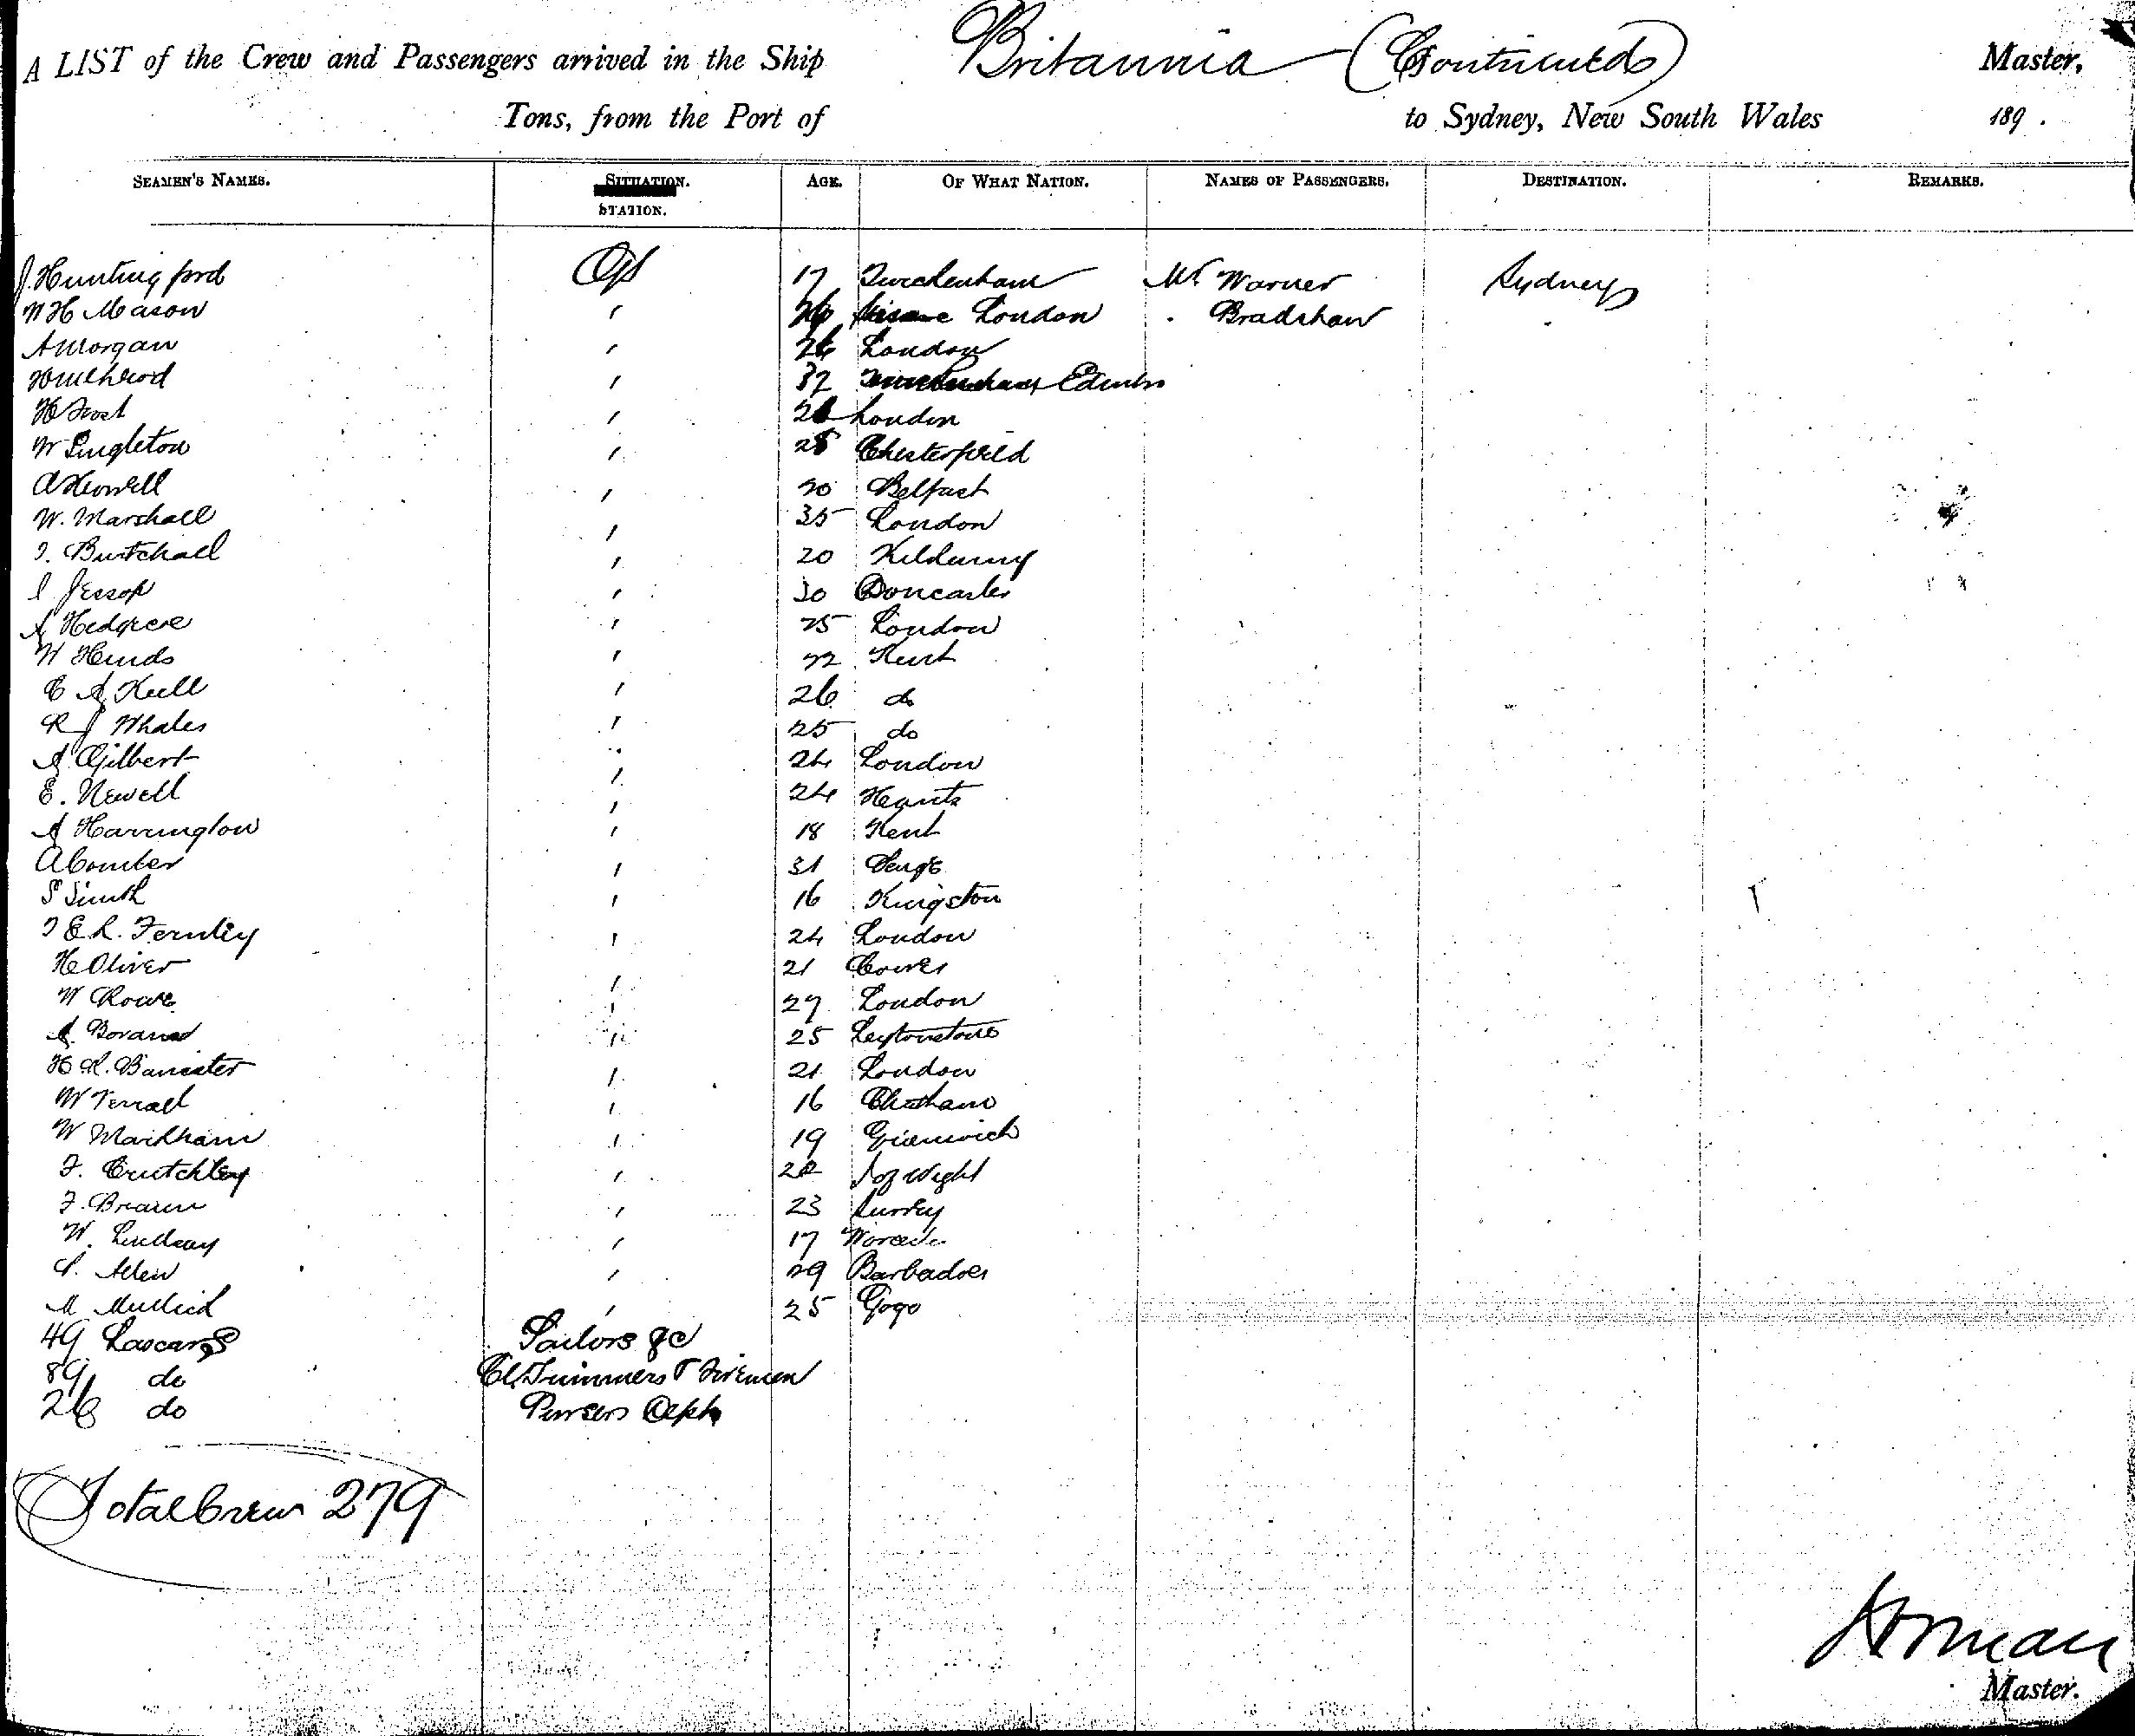 A LIST of the Crew and Passengers arrived in the Ship Britannia (Continued) Master,
Tons, from the Port of to Sydney, New South Wales 189 .
SEAMEN'S NAMES. SITUATION. STATION. AGE. OF WHAT NATION. NAMES OF PASSENGERS. DESTINATION. REMARKS.
J. Huntingford 17 Twickenham Mr Warner Sydney
W H Mason ' 26 London . Bradshaw "
A Morgan ' 26 London
' 32 Edinbro
H Frost ' London
W Singleton ' 28 Chesterfield
A Howell ' 20 Belfast
W. Marshall ' 35 London
Butchall ' 20
Jessop ' 30 Doncaster
A Hedgree ' 25 London
W Hinds ' 22 Kent
C A Kell ' 26 do
R J Whales ' 25 do
A Gilbert " 24 London
E. Newell ' 24 Hants
A Harrington ' 18 Kent
A Comber ' 31 Penge
S Smith ' 16 Kingston
T E L. Fernley ' 24 London
H Oliver ' 21 Cowes
W Rowe ' 27 London
A. ' 25 Leytonstone
H R. Banister ' 21 London
W Terrall ' 16 Chatham
W Markham ' 19 Greenwich
F. Crutchley ' 22 I of Wight
F. Brown ' 23 Surrey
W. Lindsay ' 17
S. Allen ' 29 Barbadoes
M ' 25 Gogo
49 Lascars Sailors &c
89 do Cl Trimmers & Firemen
26 do Pursers Dept
Total Crew 279
Master.